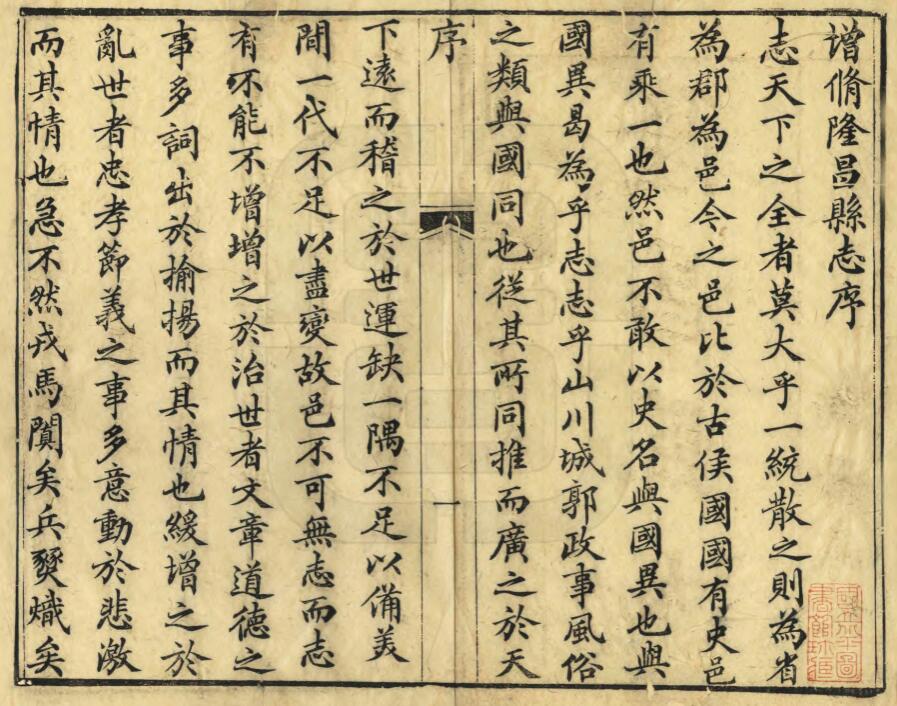 增脩隆昌縣志序
志天下之全者莫大乎一統散之則為省
為郡為邑今之邑比於古侯國國有史邑
有乘一也然邑不敢以史名與國異也與
國異曷為乎志志乎山川城郭政事風俗
之類與國同也從其所同推而廣之於天
序
一
下遠而稽之於世運缺一隅不足以備美
間一代不足以盡變故邑不可無志而志
有不能不增增之於治世者文章道德之
事多詞出於揄揚而其情也緩增之於
亂世者忠孝節義之事多意動於悲激
而其情也急不然戎馬闃矣兵燹熾矣